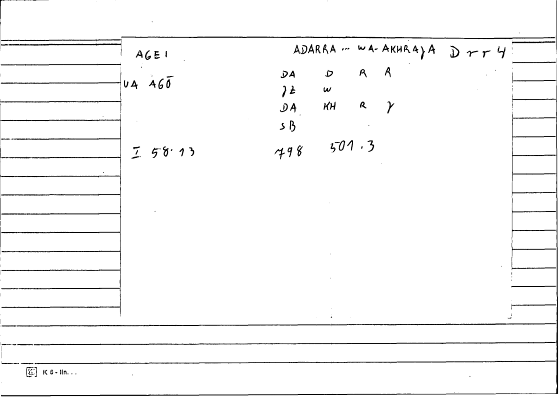 AGEI ADARRA ... WA-AKHRAJA D rr 4
DA D R R
UA AGŌ
JZ W
DA KH R J
SB
I 58.13 798 501.3
K 6 - lln...